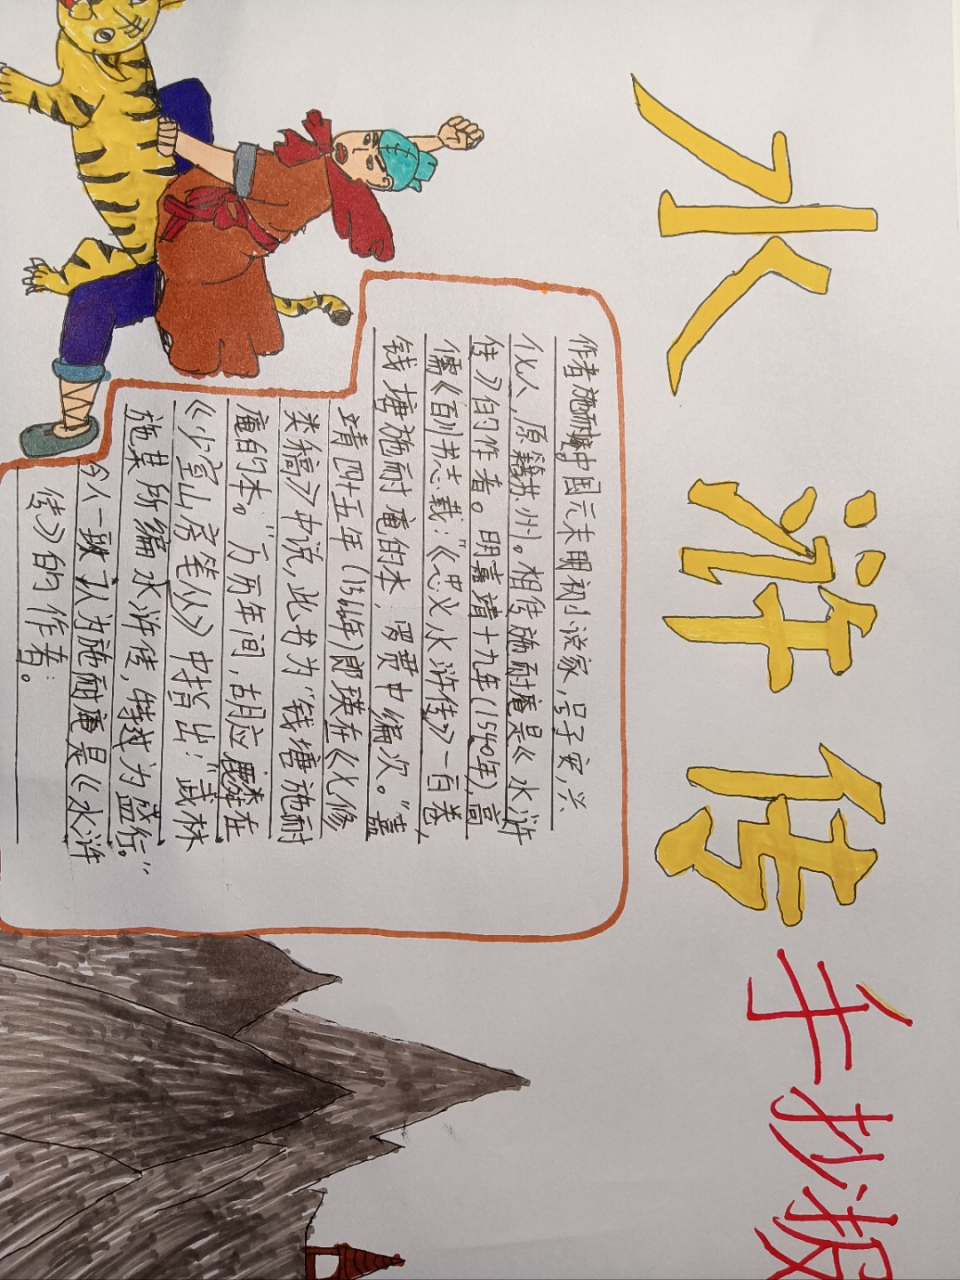 水浒传手抄报
作者施耐庵,中国元末明初小说家,号子安,兴
化人,原籍苏州。相传施耐庵是《水浒
传》的作者。明嘉靖十九年(1540年),高
儒《百川书志》载:“《忠义水浒传》一百卷,
钱塘施耐庵的本,罗贯中编次。”嘉
靖四十五年(1566年)郎瑛在《七修
类稿》中说,此书为“钱塘施耐
庵的本。”万历年间,胡应麟在
《少室山房笔丛》中指出:“武林
施某所编水浒传,特为盛行。”
今人一般认为施耐庵是《水浒
传》的作者。